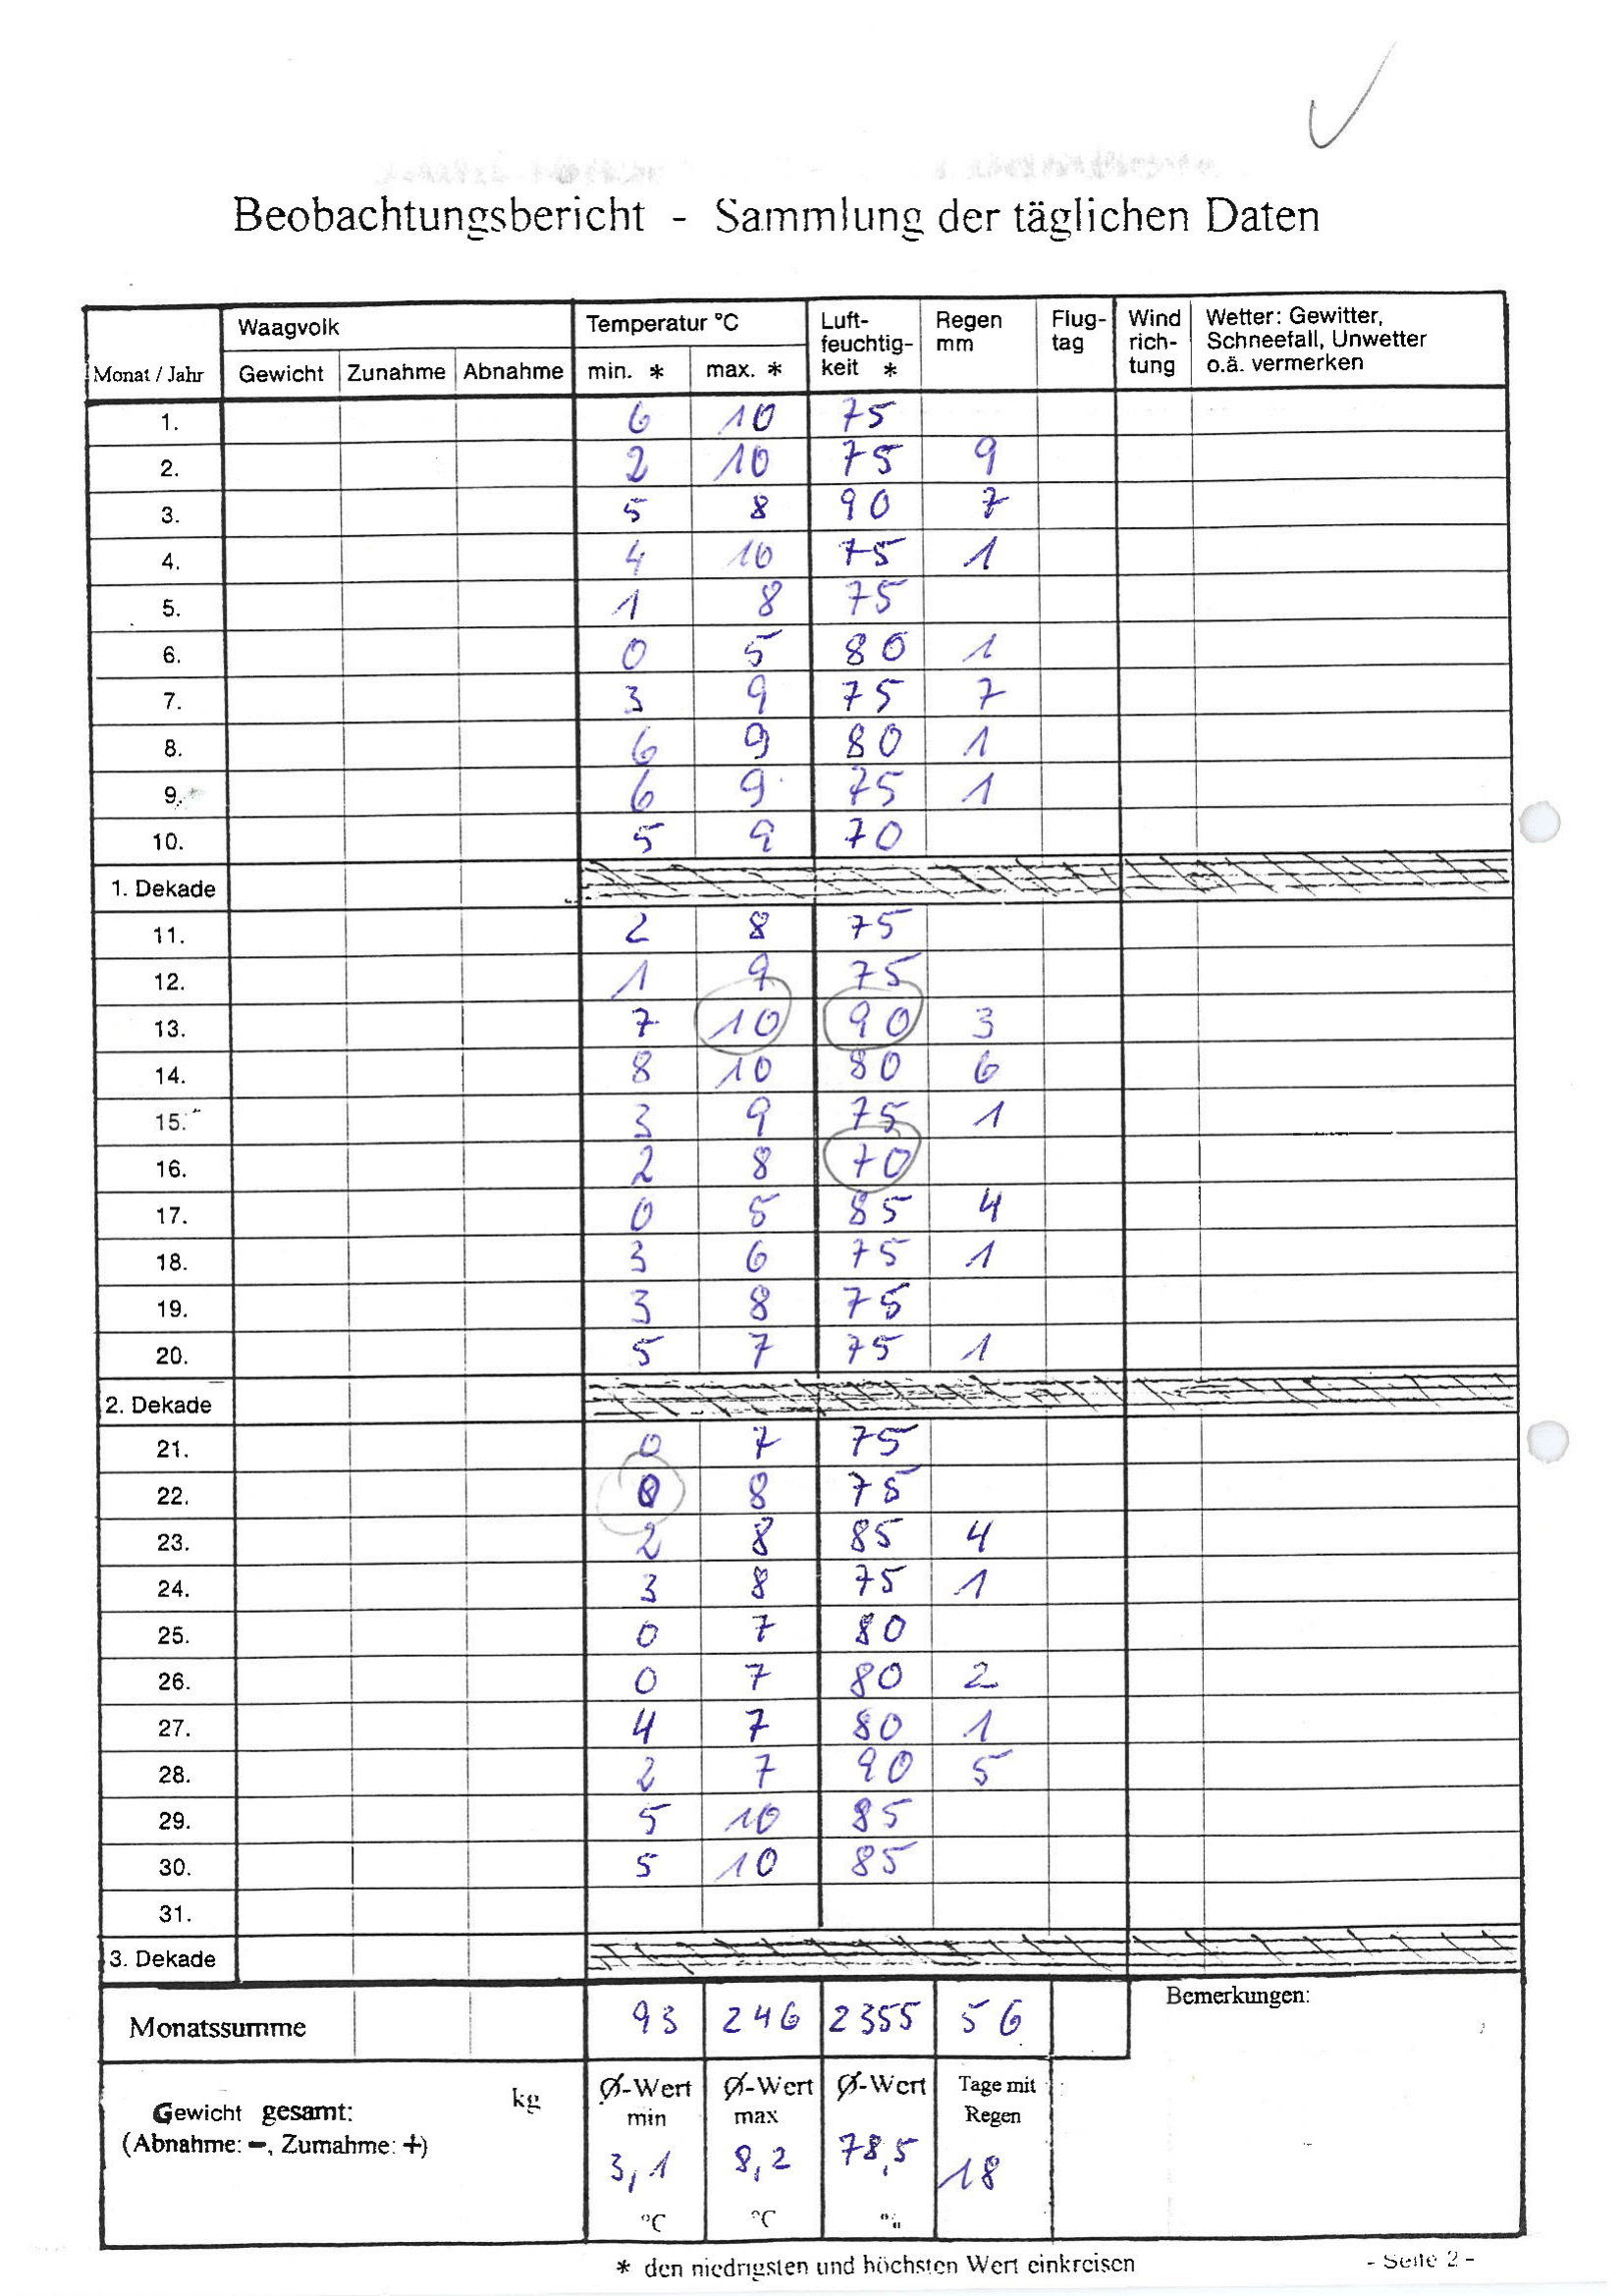 Beobachtungsbericht - Sammlung der täglichen Daten
Monat / Jahr
Waagvolk
Gewicht Zunahme Abnahme
Temperatur °C
min. * max. *
Luft-
feuchtig-
keit *
Regen
mm
Flug-
tag
Wind
rich-
tung
Wetter: Gewitter,
Schneefall, Unwetter
o.ä. vermerken
1. 6 10 75
2. 2 10 75 9
3. 5 8 90 7
4. 4 10 75 1
5. 1 8 75
6. 0 5 80 1
7. 3 9 75 7
8. 6 9 80 1
9. 6 9 75 1
10. 5 9 70
1. Dekade
11. 2 8 75
12. 1 9 75
13. 7 10 90 3
14. 8 10 80 6
15. 3 9 75 1
16. 2 8 70
17. 0 5 85 4
18. 3 6 75 1
19. 3 8 75
20. 5 7 75 1
2. Dekade
21. 0 7 75
22. 0 8 75
23. 2 8 85 4
24. 3 8 75 1
25. 0 7 80
26. 0 7 80 2
27. 4 7 80 1
28. 2 7 90 5
29. 5 10 85
30. 5 10 85
31.
3. Dekade
Monatssumme 93 246 2355 56
Bemerkungen:
Gewicht gesamt: kg
(Abnahme: -, Zumahme: +)
Ø-Wert
min
3,1
°C
Ø-Wert
max
8,2
°C
Ø-Wert
78,5
%
Tage mit
Regen
18
* den niedrigsten und höchsten Wert einkreisen
- Seite 2 -